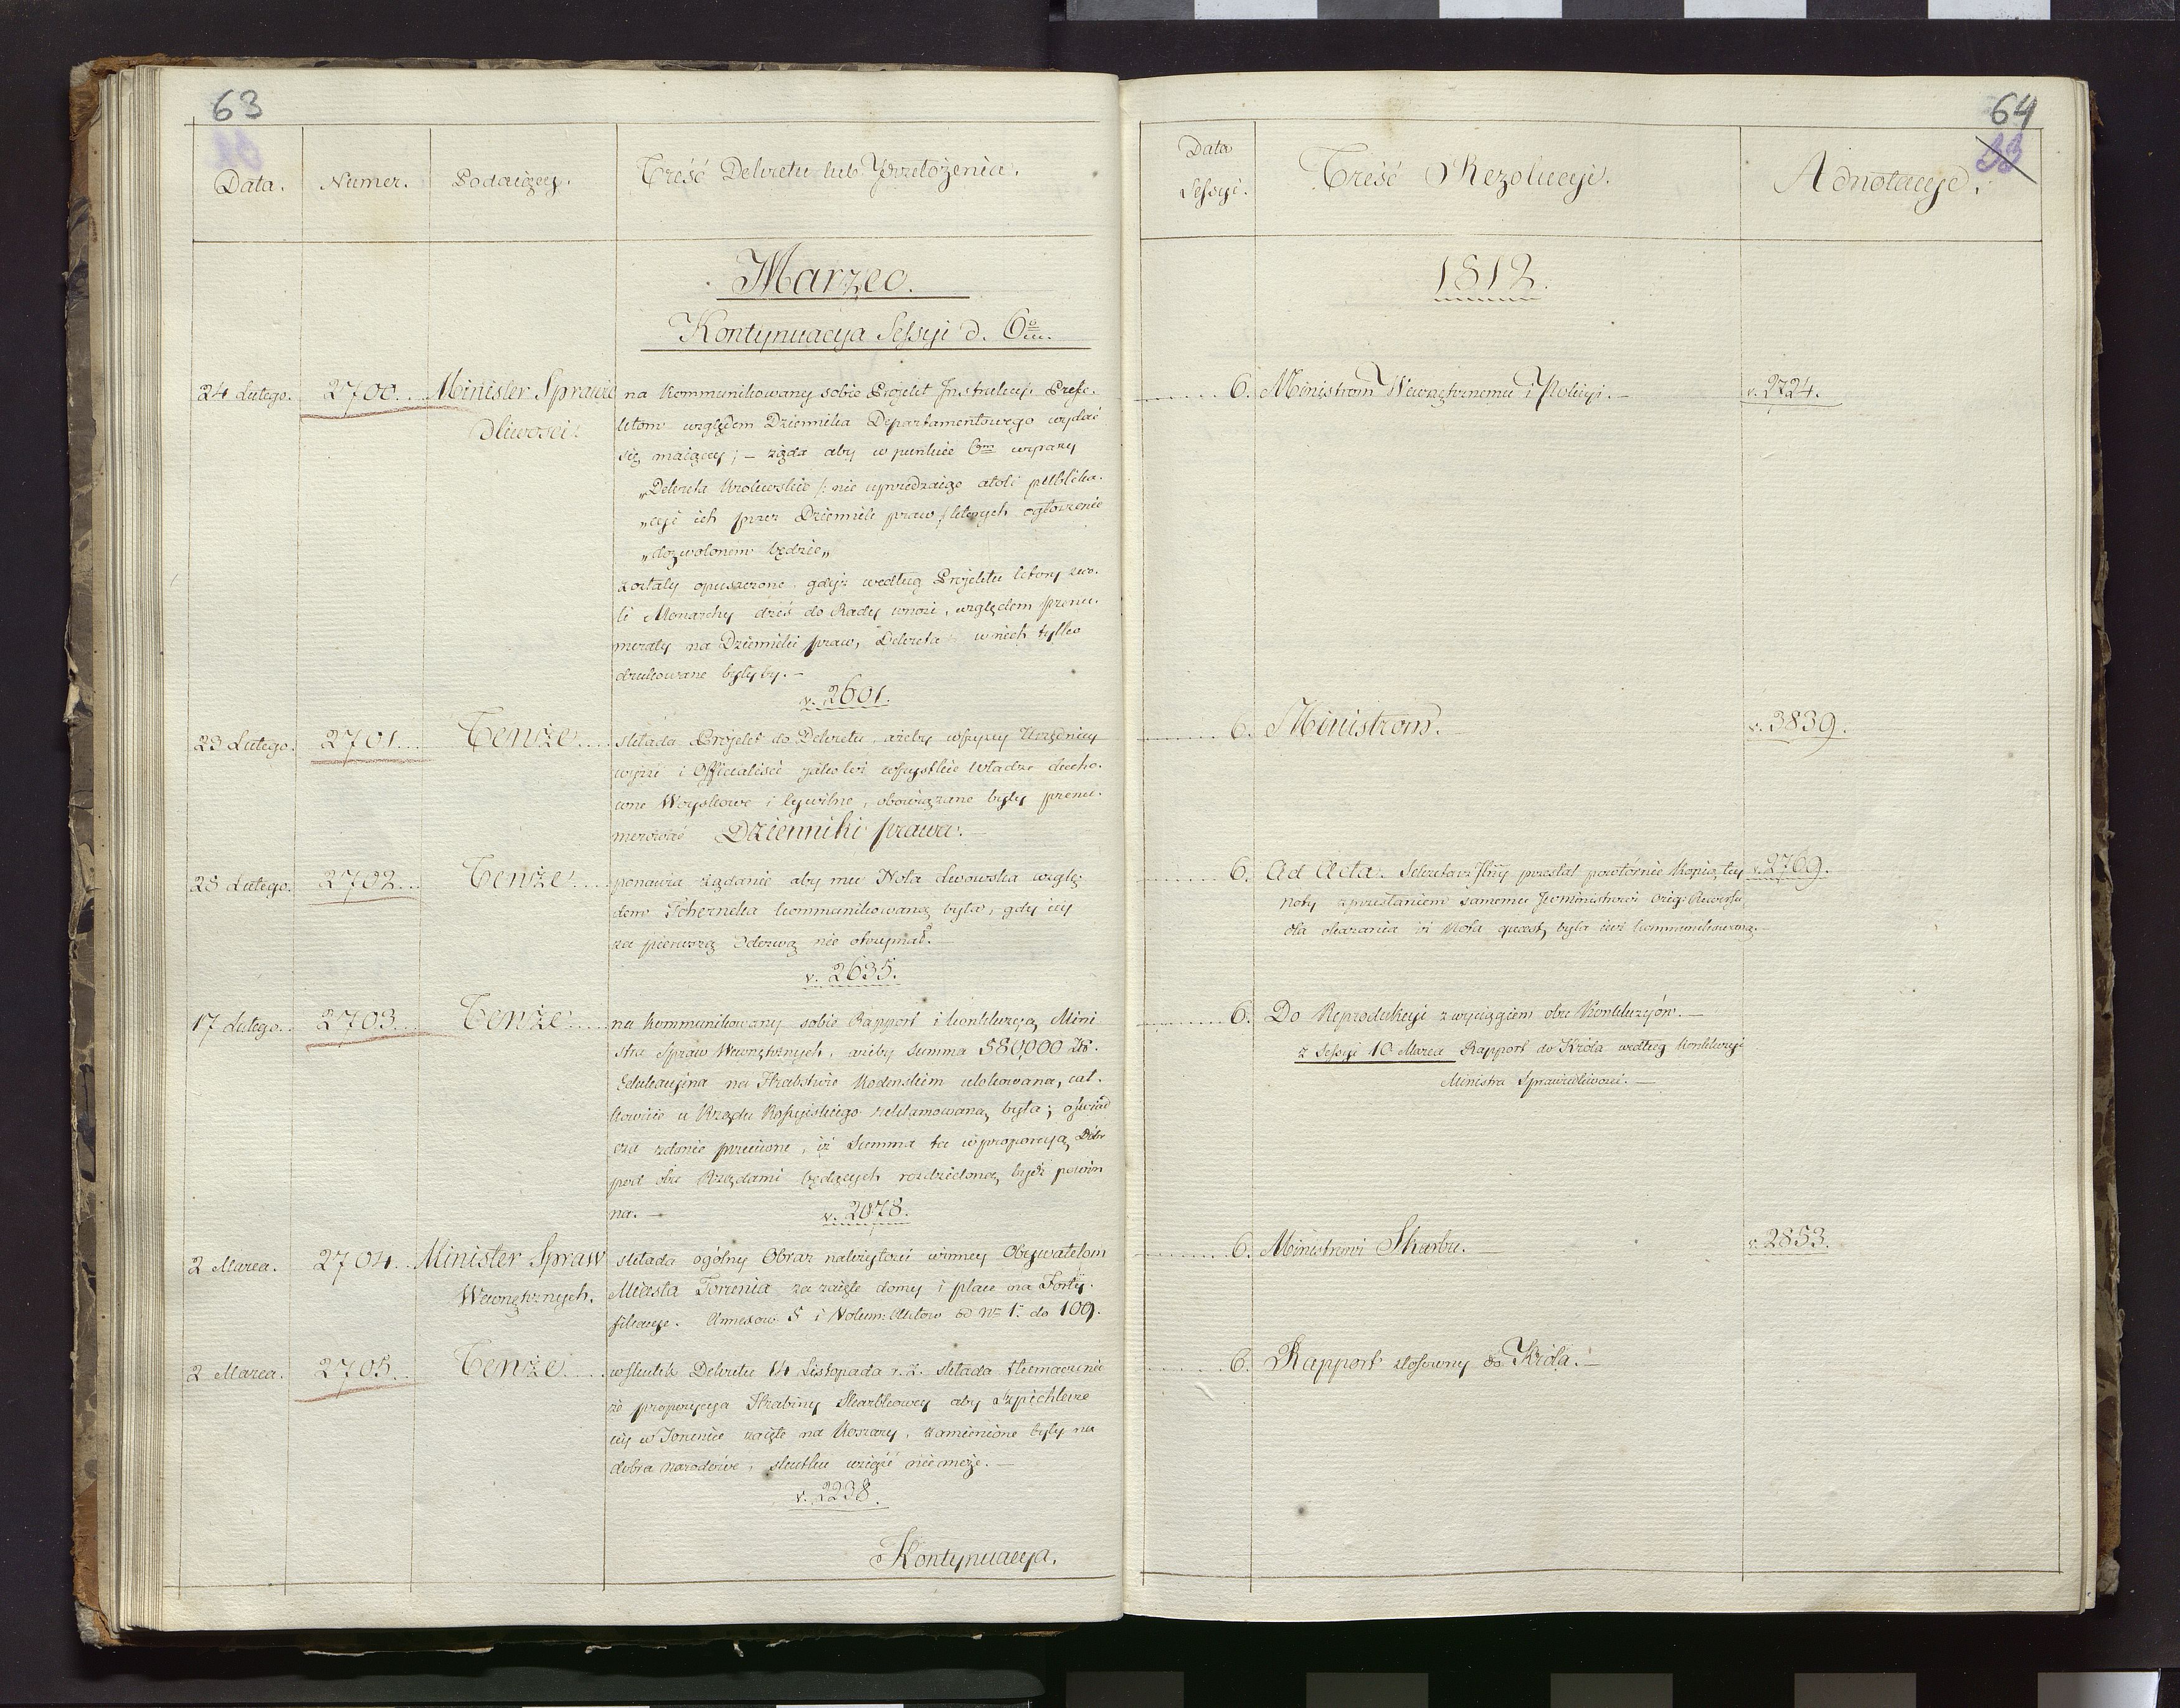 63
Data.
Numer.
Podaiący.
Treść Dekretu lub Przełożenia.
Marzec.
Kontynuacya Sessyi d. 6º
24 Lutego. 2700. Minister Sprawie
dliwości.
na kommunikowany sobie Projekt Instrukcyi Prefe-
ktom względem Dziennika Departamentowego wydać
się maiący; – żąda aby w punkcie 6m wyrazy
„Dekreta Krolewskie /: nie uprzedzaiąc atoli publika-
„cyi ich przez Dziennik praw / których ogłoszenie
„dozwolonem będzie„
zostały opuszczone gdyż według Projektu który
li Monarchy dziś do Rady wnosi, względem prenu-
meraty na Dzienniki praw, Dekreta w nich tylko
drukowane byłyby. –
v. 2601.
23 Lutego. 2701. Tenże
składa Projekt do Dekretu, ażeby wszyscy Urzędnicy
wyżsi i Officialiści jakoteż wszystkie Władze ducho-
wne Woyskowe i Cywilne, obowiązane były prenu-
merować Dzienniki prawa. –
28 Lutego. 2702. Tenże
ponawia żądanie aby mu Nota Lwowska wzglę-
dem kommunikowaną była, gdy iey
za pierwszą Odezwą nie otrzymał. –
v. 2635.
17 Lutego. 2703. Tenże
na kommunikowany sobie Rapport i konkluzyą Mini
stra Spraw Wewnętrznych, ażeby Summa 580,000 Zł.
Edukacyina na Hrabstwie Kodenskiem ulokowana, cał-
kowicie u Rządu Rossyiskiego reklamowaną była; oświad
cza zdanie przeciwne, iż Summa ta w proporcyą Dóbr
pod obu Rządami będących rozdzieloną bydź powin
na. –
v. 2078.
2 Marca. 2704. Minister Spraw
Wewnętrznych.
składa ogólny Obraz należytości winney Obywatelom
Miasta Torunia za zaięte domy i place na Forty-
fikacye. Annexow 5 i Volum: Aktow od Nro 1. do 109.
2 Marca. 2705. Tenże
w skutek Dekretu 14 Listopada r. z. składa tłemaczenie
że propozycya Hrabiny Skarbkowey aby Szpichlerze
iey w Toruniu zaięte na Koszary, zamienione były na
dobra narodowe, skutku wziąść nie może. –
v. 2238.
Kontynuacya.
64
Data
Sessyi.
Treść Rezolucyi.
Adnotacye.
1812.
6. Ministrom Wewnętrznemu i Policyi. –
v. 2724.
6. Ministrom.
v. 3839.
6. Ad Acta. Sekretarz przesłał powtórnie kopią tey
v. 2769.
noty z przesłaniem samemu Ministrowi orig:
dla okazania iż Nota quaest. była iuż kommunikowaną.
6. Do Reprodukcyi z wyciągiem obu Konkluzyów. –
z Sessyi 10 Marca Rapport do Króla według konkluzyi
Ministra Sprawiedliwości. –
6. Ministrowi Skarbu.
v. 2853.
6. Rapport stosowny do Króla. –